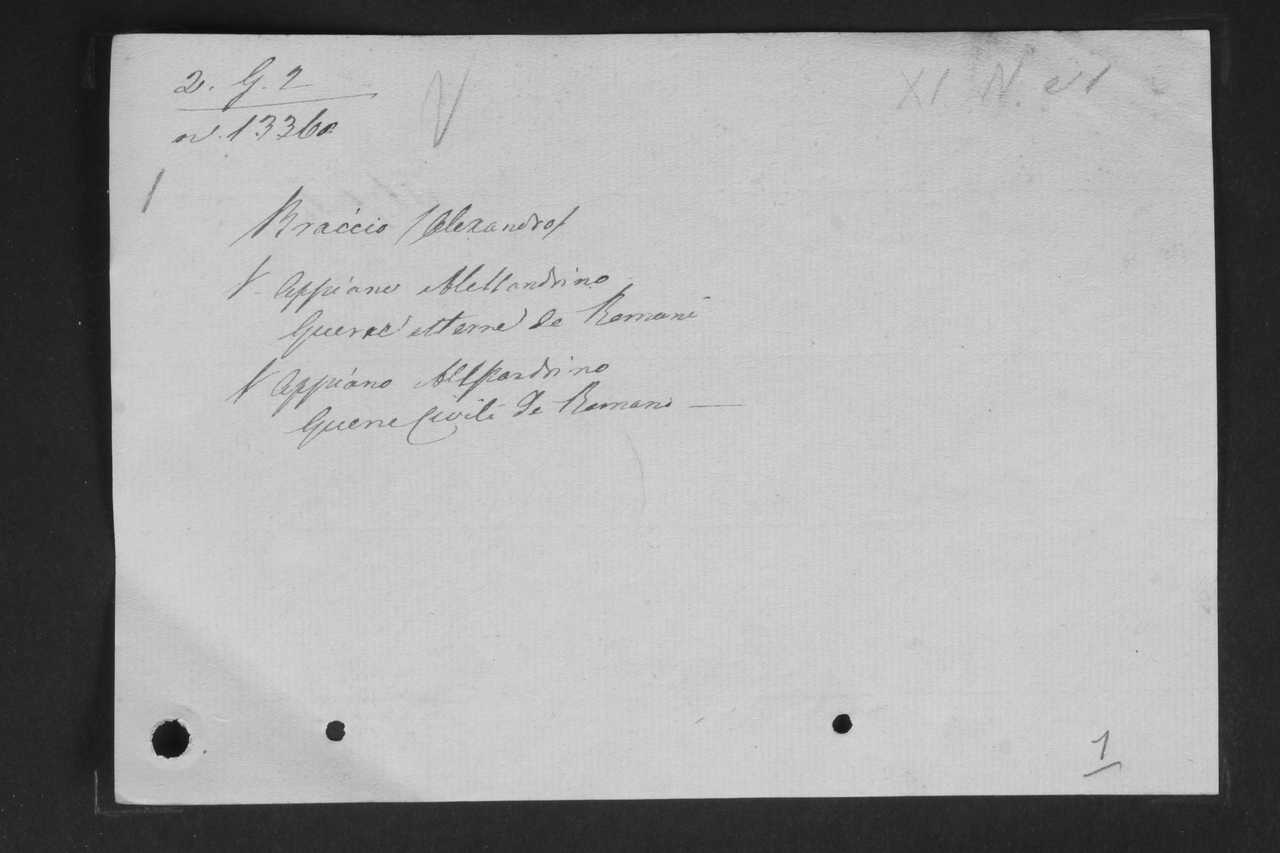 2. G. 2
n. 13360
V
XI. N.
1
Braccio (Alexandro)
V. Appiano Alessandrino
Guerre esterne de Romani
V Appiano Alessandrino
Guerre Civili de Romani —
1